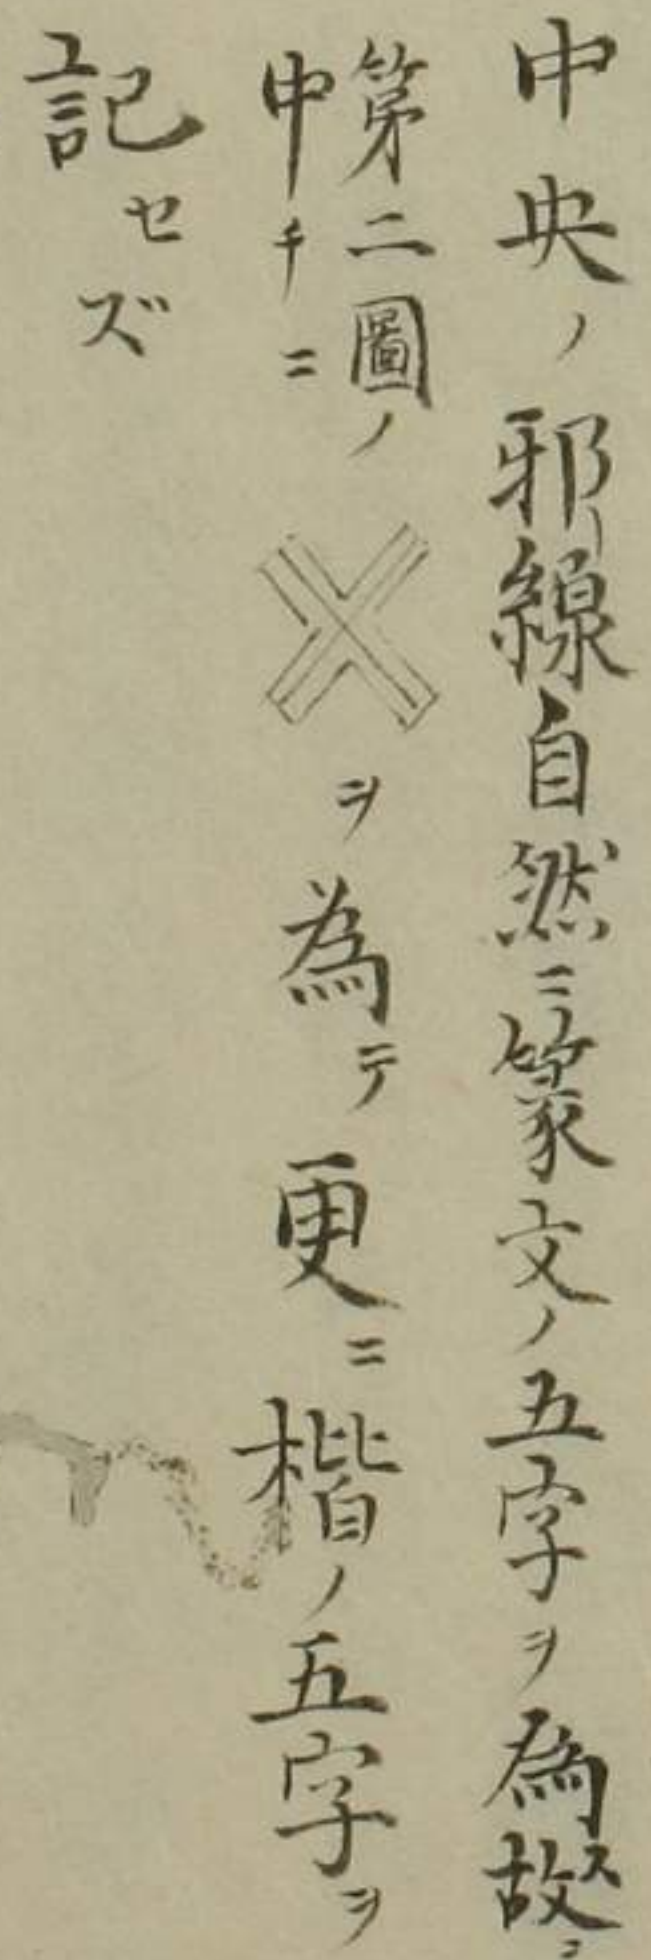 中央ノ邪線自然ニ篆文ノ五字ヲ為ス故ニ
第二圖ノ
中チニ
ヲ為テ更ニ楷ノ五字ヲ
記セズ